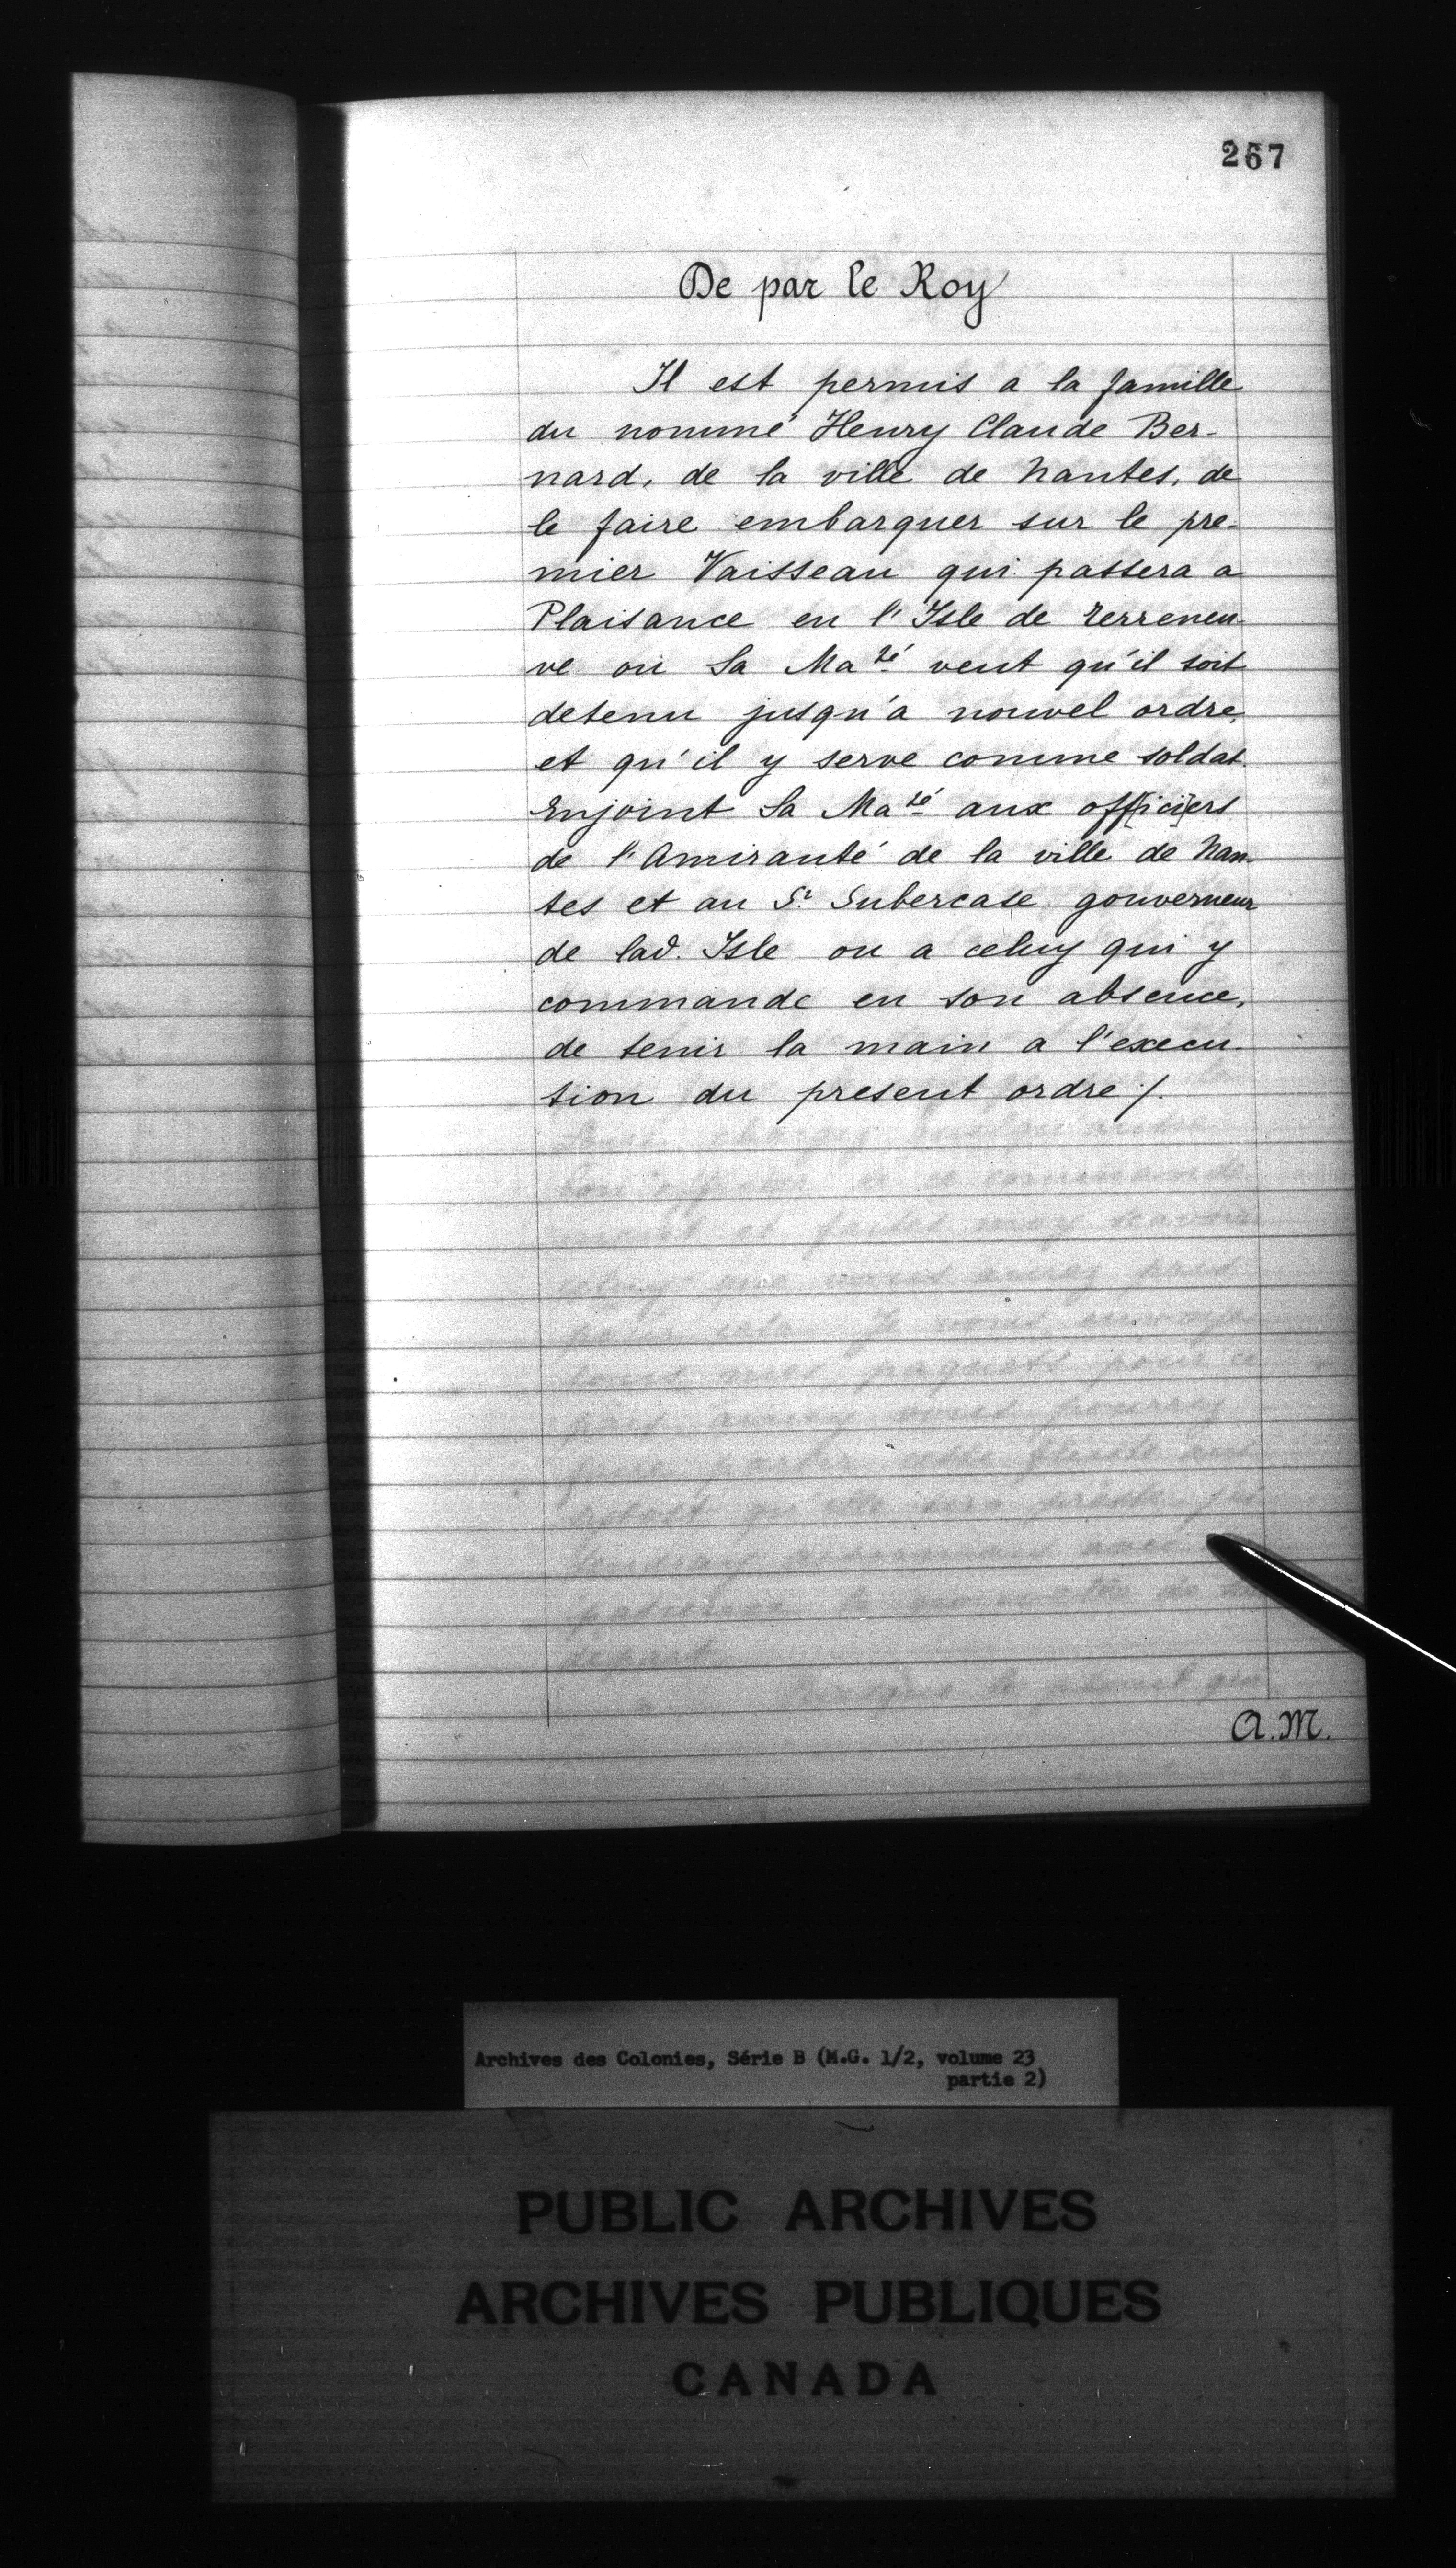 267
De par le Roy
Il est permis a la famille
du nommé Henry Claude Ber-
nard, de la ville de Nantes, de
le faire embarquer sur le pre-
mier Vaisseau qui passera a
Plaisance en l'Isle de terreneu-
ve ou Sa Ma.té veut qu'il soit
detenu jusqu'a nouvel ordre,
et qu'il y serve comme soldat.
Enjoint Sa Ma.té aux off[ici]ers
de l'Amirauté de la ville de Nan-
tes et au S.r Subercase gouverneur
de lad. Isle ou a celuy qui y
commande en son absence,
de tenir la main a l'execu-
tion du present ordre ./.
A.M.
Archives des Colonies, Série B (M.G. 1/2, volume 23
partie 2)
PUBLIC ARCHIVES
ARCHIVES PUBLIQUES
CANADA